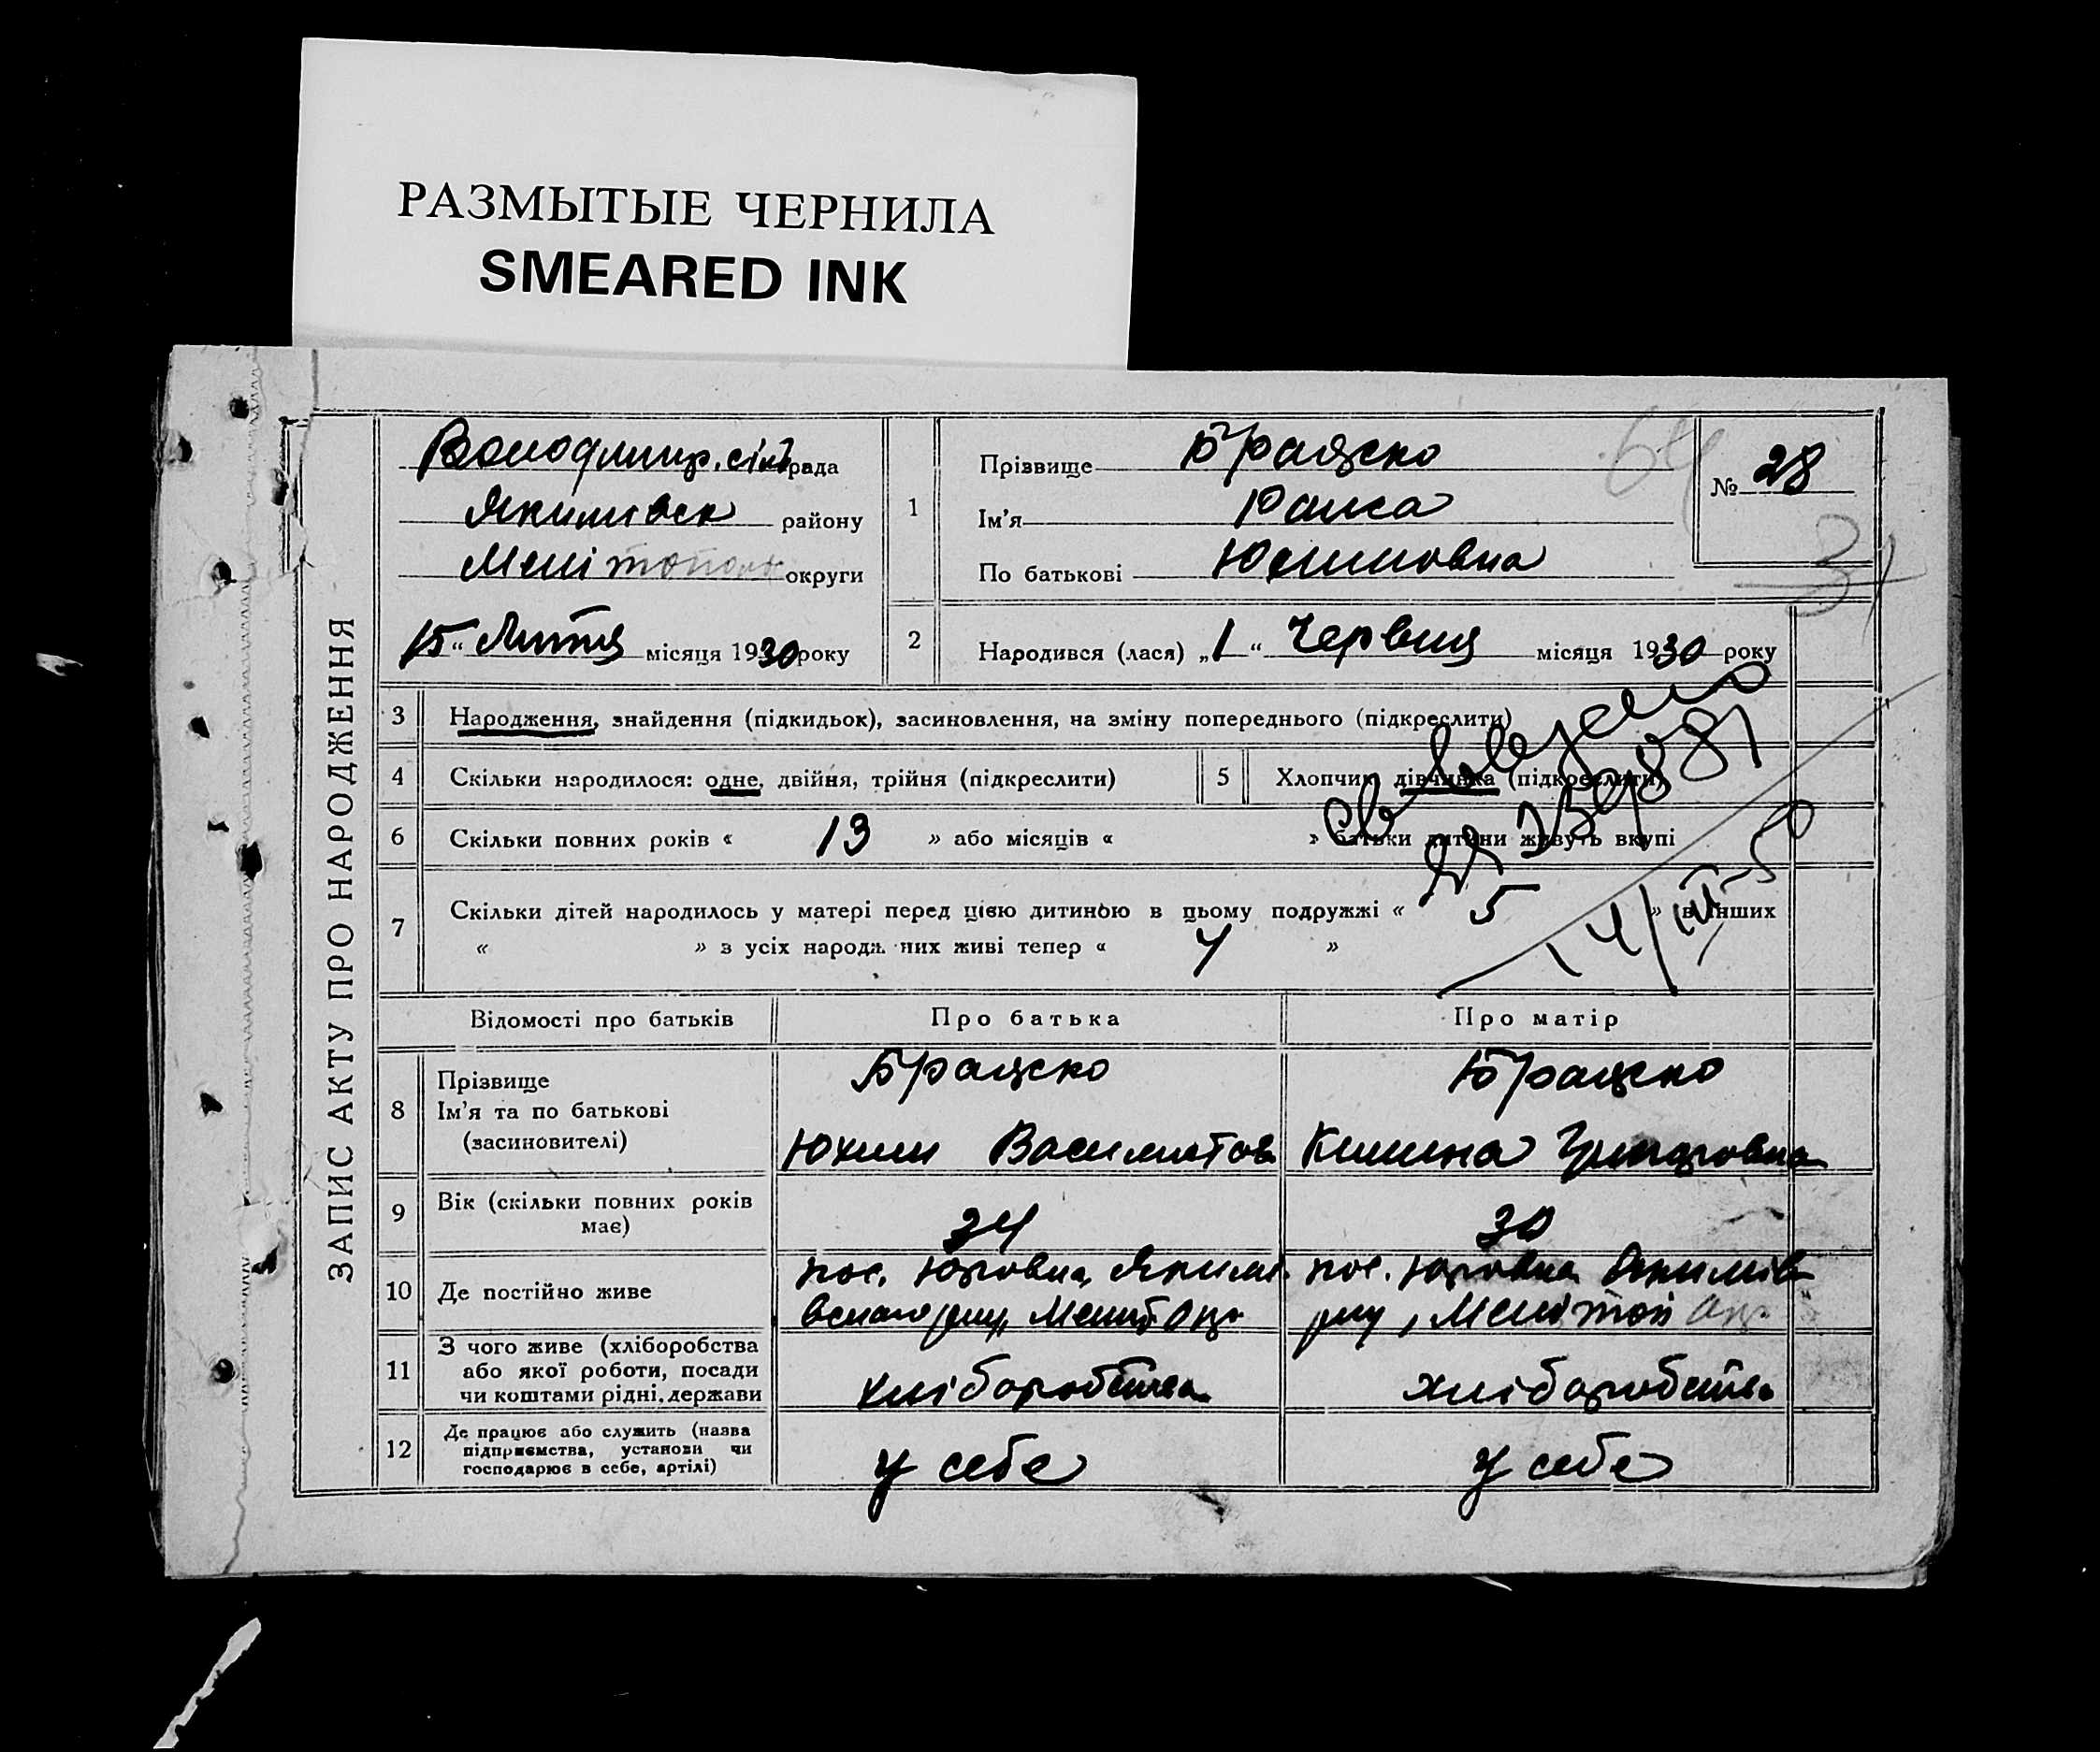 РАЗМЫТЫЕ ЧЕРНИЛА
SMEARED INK
ЗАПИС АКТУ ПРО НАРОДЖЕННЯ
Володимир. сільрада
Якимівск району
Меліtопольс округи
15 " Липня місяця 1930 року
1
Прізвище
Ім'я Раиса
По батькові Юхимовна
№ 28
2 Народився (лася) „1 " Червня місяця 1930 року
3 Народження, знайдення (підкидьок), засиновлення, на зміну попереднього (підкреслити)
4 Скільки народилося: одне, двійня, трійня (підкреслити)
5 Хлопчик, дівчинка (підкреслити)
6 Скільки повних років « 13 » або місяців « » батьки дитини живуть вкупі
7 Скільки дітей народилось у матері перед цією дитиною в цьому подружжі « 5 » в інших
« » з усіх народж них живі тепер « 4 »
14/III-50
Відомості про батьків Про батька Про матір
8 Прізвище
Ім'я та по батькові
(засиновителі)
Юхим
Григоровна
9 Вік (скільки повних років
має)
34 30
10 Де постійно живе
пос. Юровка, Якимі
пос. Юровка Якимів
рну, Меліtоп окр.
11 З чого живе (хліборобства
або якої роботи, посади
чи коштами рідні, держави
хліборобства хліборобства
12 Де працює або служить (назва
підприємства, установи чи
господарює в себе, артілі)
у себе у себе